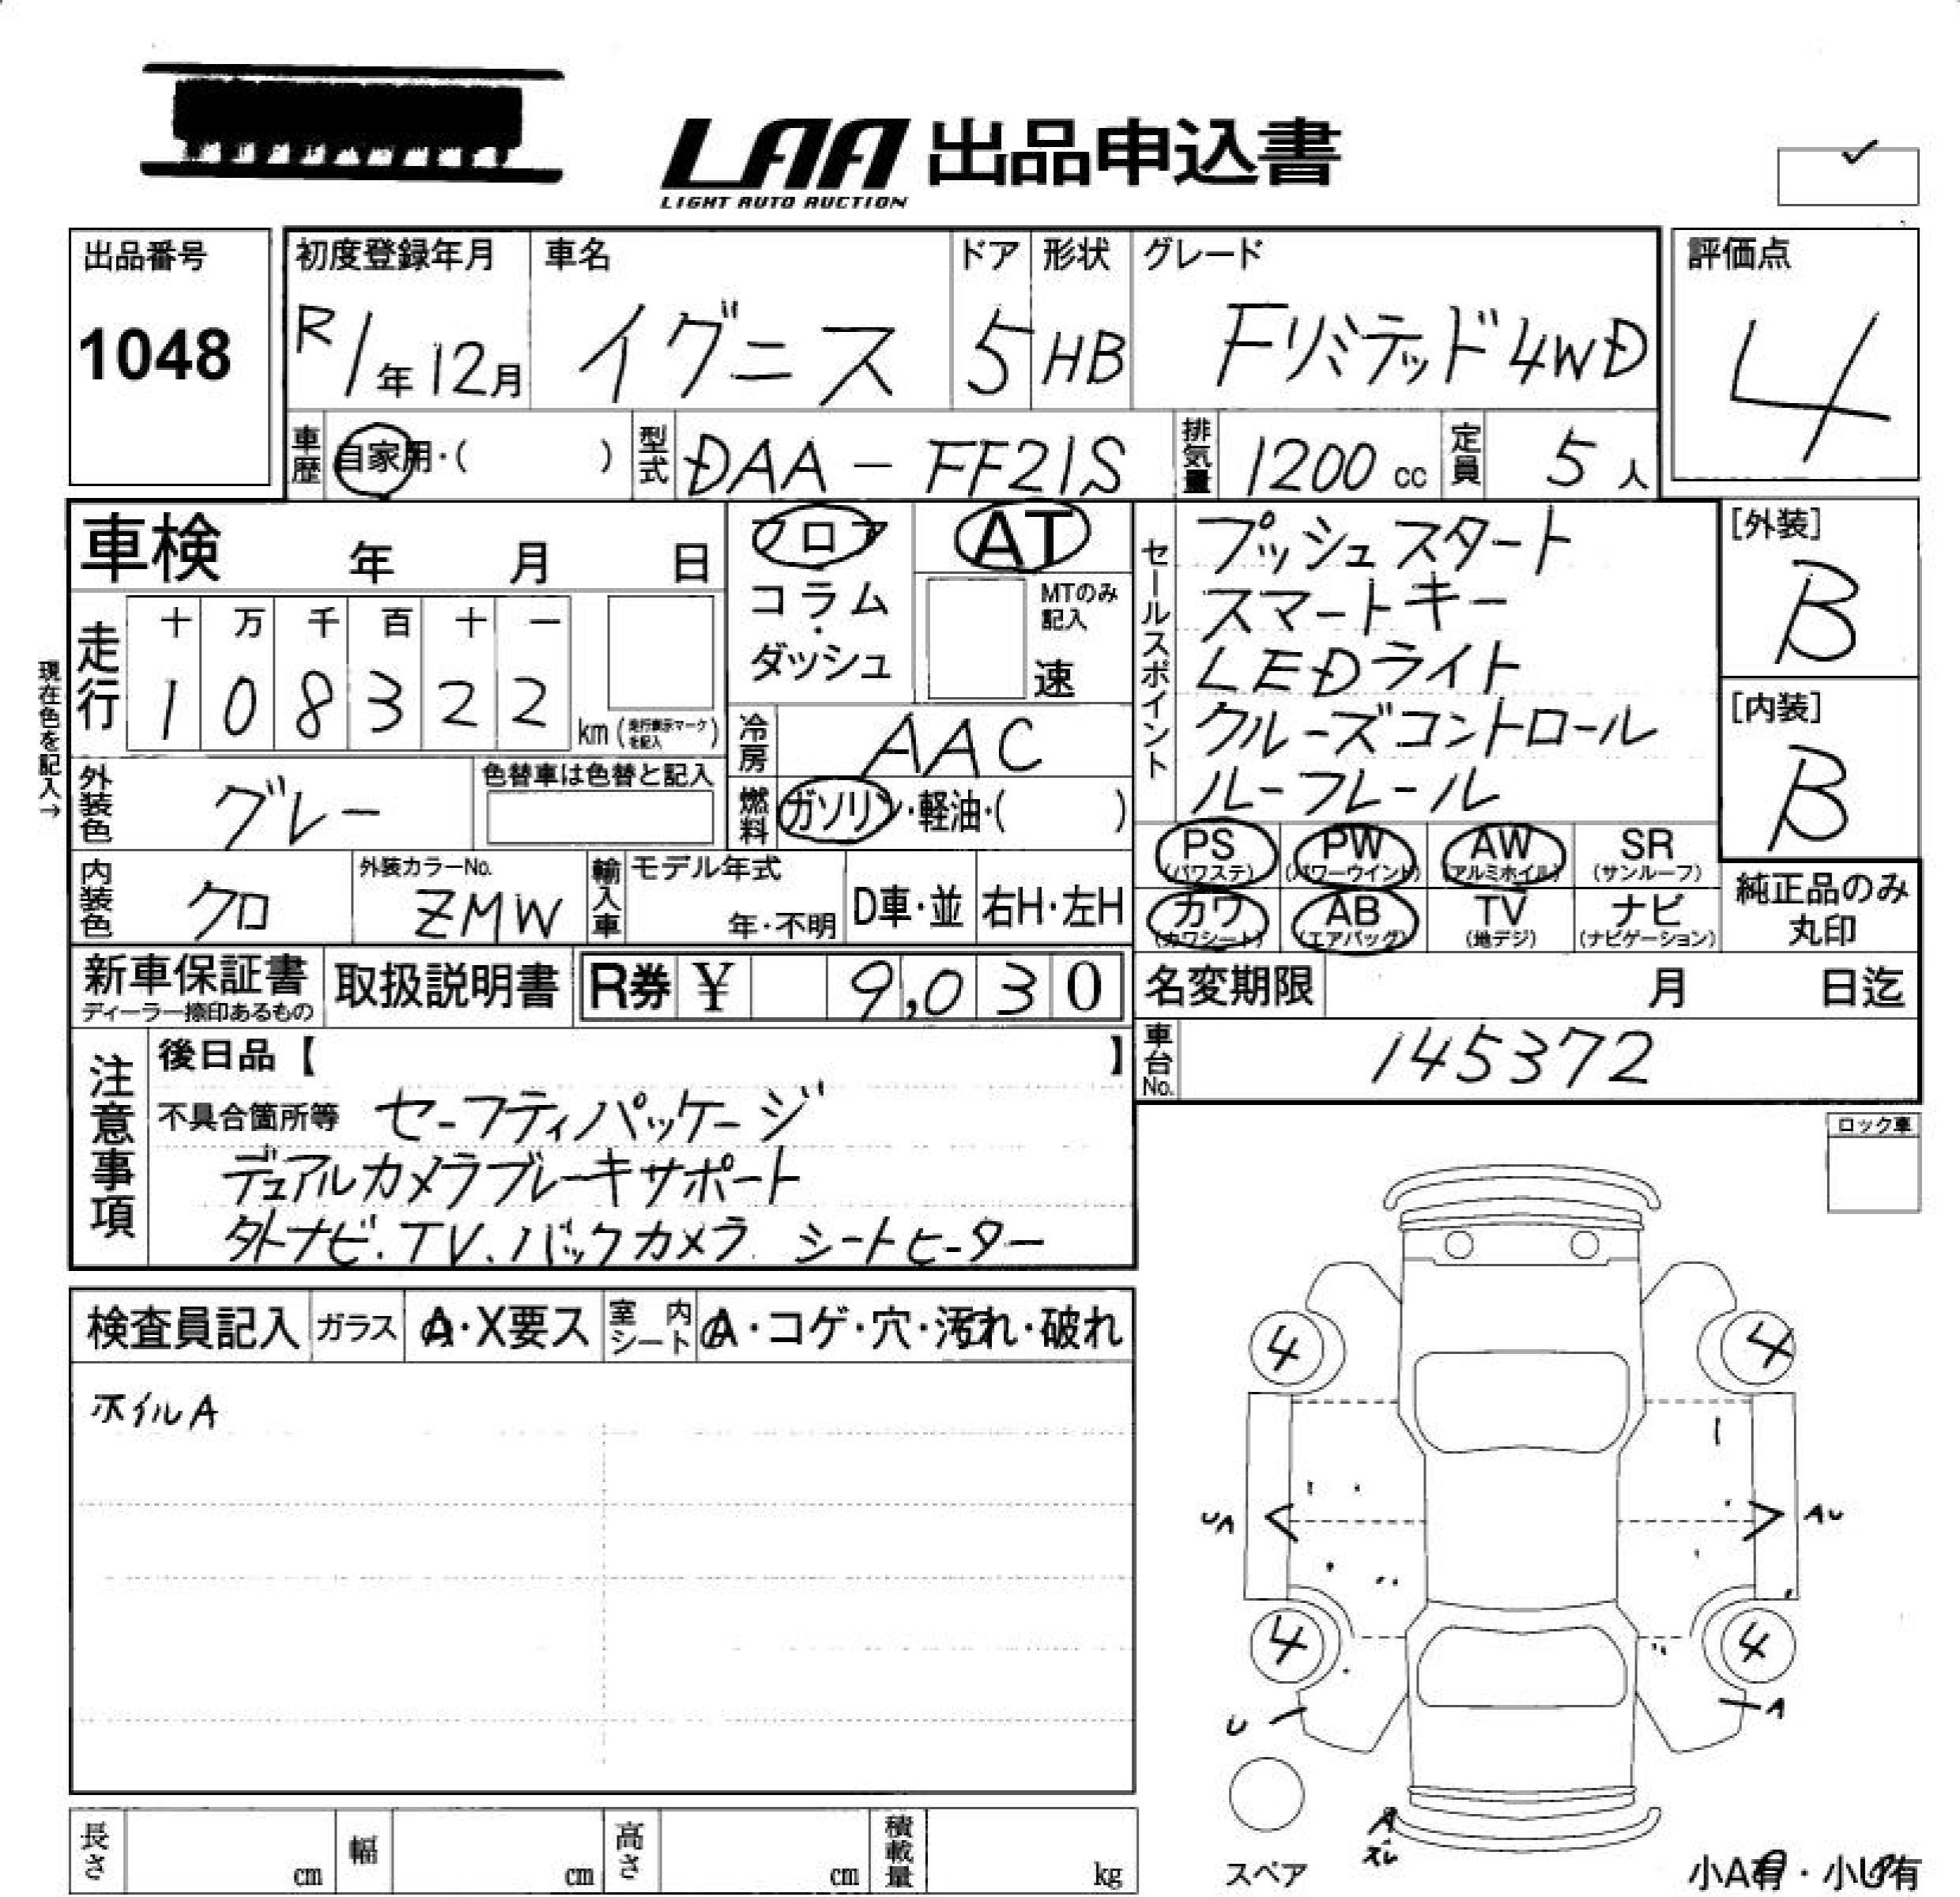 LAA 出品申込書
LIGHT AUTO AUCTION
出品番号
1048
初度登録年月
R1年12月
車名
イグニス
ドア
5
形状
HB
グレード
Fリミテッド4WD
評価点
4
車歴
自家用・( )
型式
DAA-FF21S
排気量
1200 cc
定員
5人
車検 年 月 日
フロア
コラム
・
ダッシュ
AT
MTのみ
記入
速
セールスポイント
プッシュスタート
スマートキー
LEDライト
クルーズコントロール
ルーフレール
[外装]
B
[内装]
B
現在色を記入→
走行
十 万 千 百 十 一
1 0 8 3 2 2
km (走行表示マークを記入)
冷房
AAC
燃料
ガソリン・軽油・( )
外装色
グレー
色替車は色替と記入
内装色
クロ
外装カラーNo.
ZMW
輸入車
モデル年式
年・不明
D車・並
右H・左H
PS
(パワステ)
PW
(パワーウインド)
AW
(アルミホイル)
SR
(サンルーフ)
カワ
(カワシート)
AB
(エアバッグ)
TV
(地デジ)
ナビ
(ナビゲーション)
純正品のみ
丸印
新車保証書
ディーラー捺印あるもの
取扱説明書
R券 ¥ 9,030
名変期限 月 日迄
車台No.
145372
注意事項
後日品【 】
不具合箇所等 セーフティパッケージ
デュアルカメラブレーキサポート
外ナビ.TV.バックカメラ.シートヒーター
ロック車
検査員記入
ガラス
A・X要ス
室内シート
A・コゲ・穴・汚れ・破れ
ホイルA
4
4
UA
AU
4
4
U
A
スペア
A
ズレ
小A有・小U有
長さ
cm
幅
cm
高さ
cm
積載量
kg